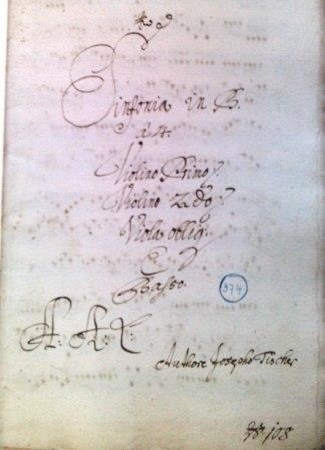 Sinfonia in B.
a 4.
Violino Primo.
Violino 2do
Viola oblig.
E
Basso.
374
Authore Josepho Tischer
No. 108